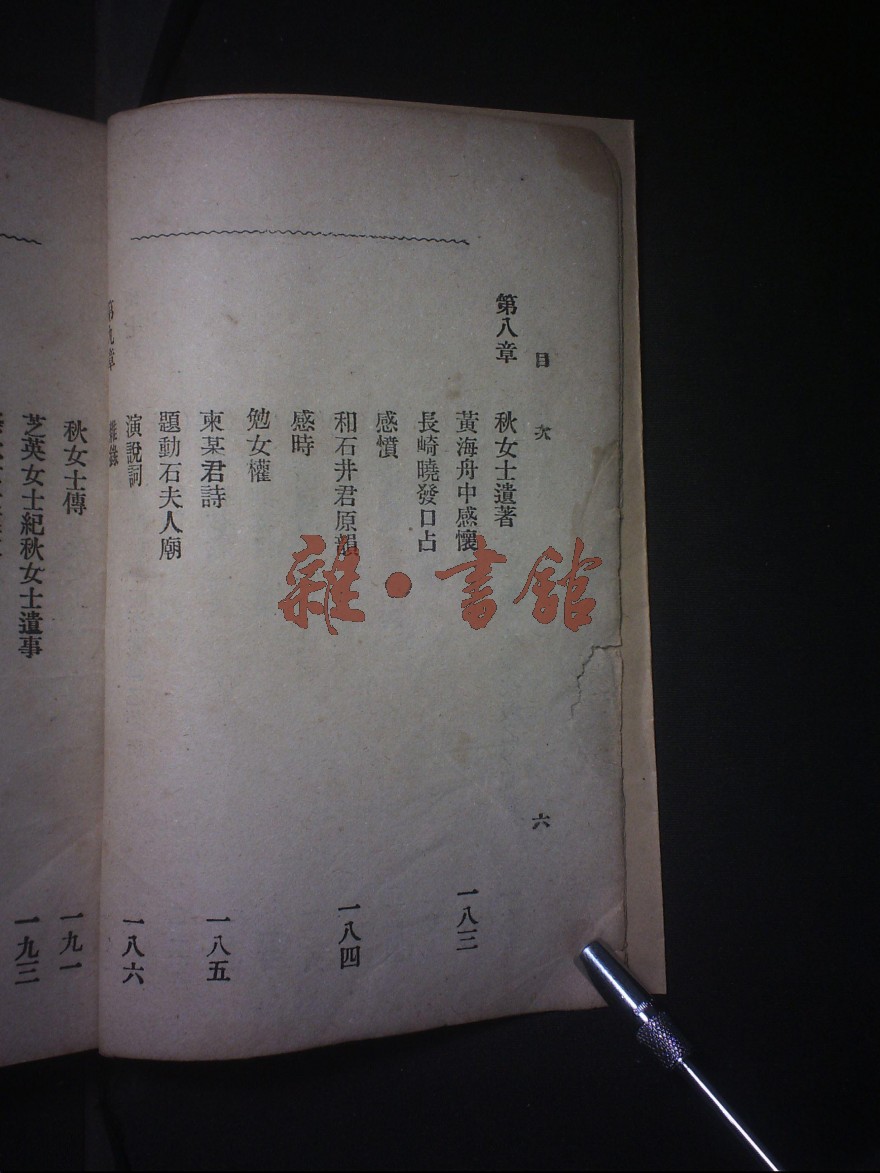 目次
六
第八章 秋女士遺著
黃海舟中感懷 一八三
長崎曉發口占
感憤
和石井君原韻 一八四
感時
勉女權
柬某君詩 一八五
題動石夫人廟
演說詞 一八六
第九章 雜錄
秋女士傳 一九一
芝英女士紀秋女士遺事 一九三
雜·書館